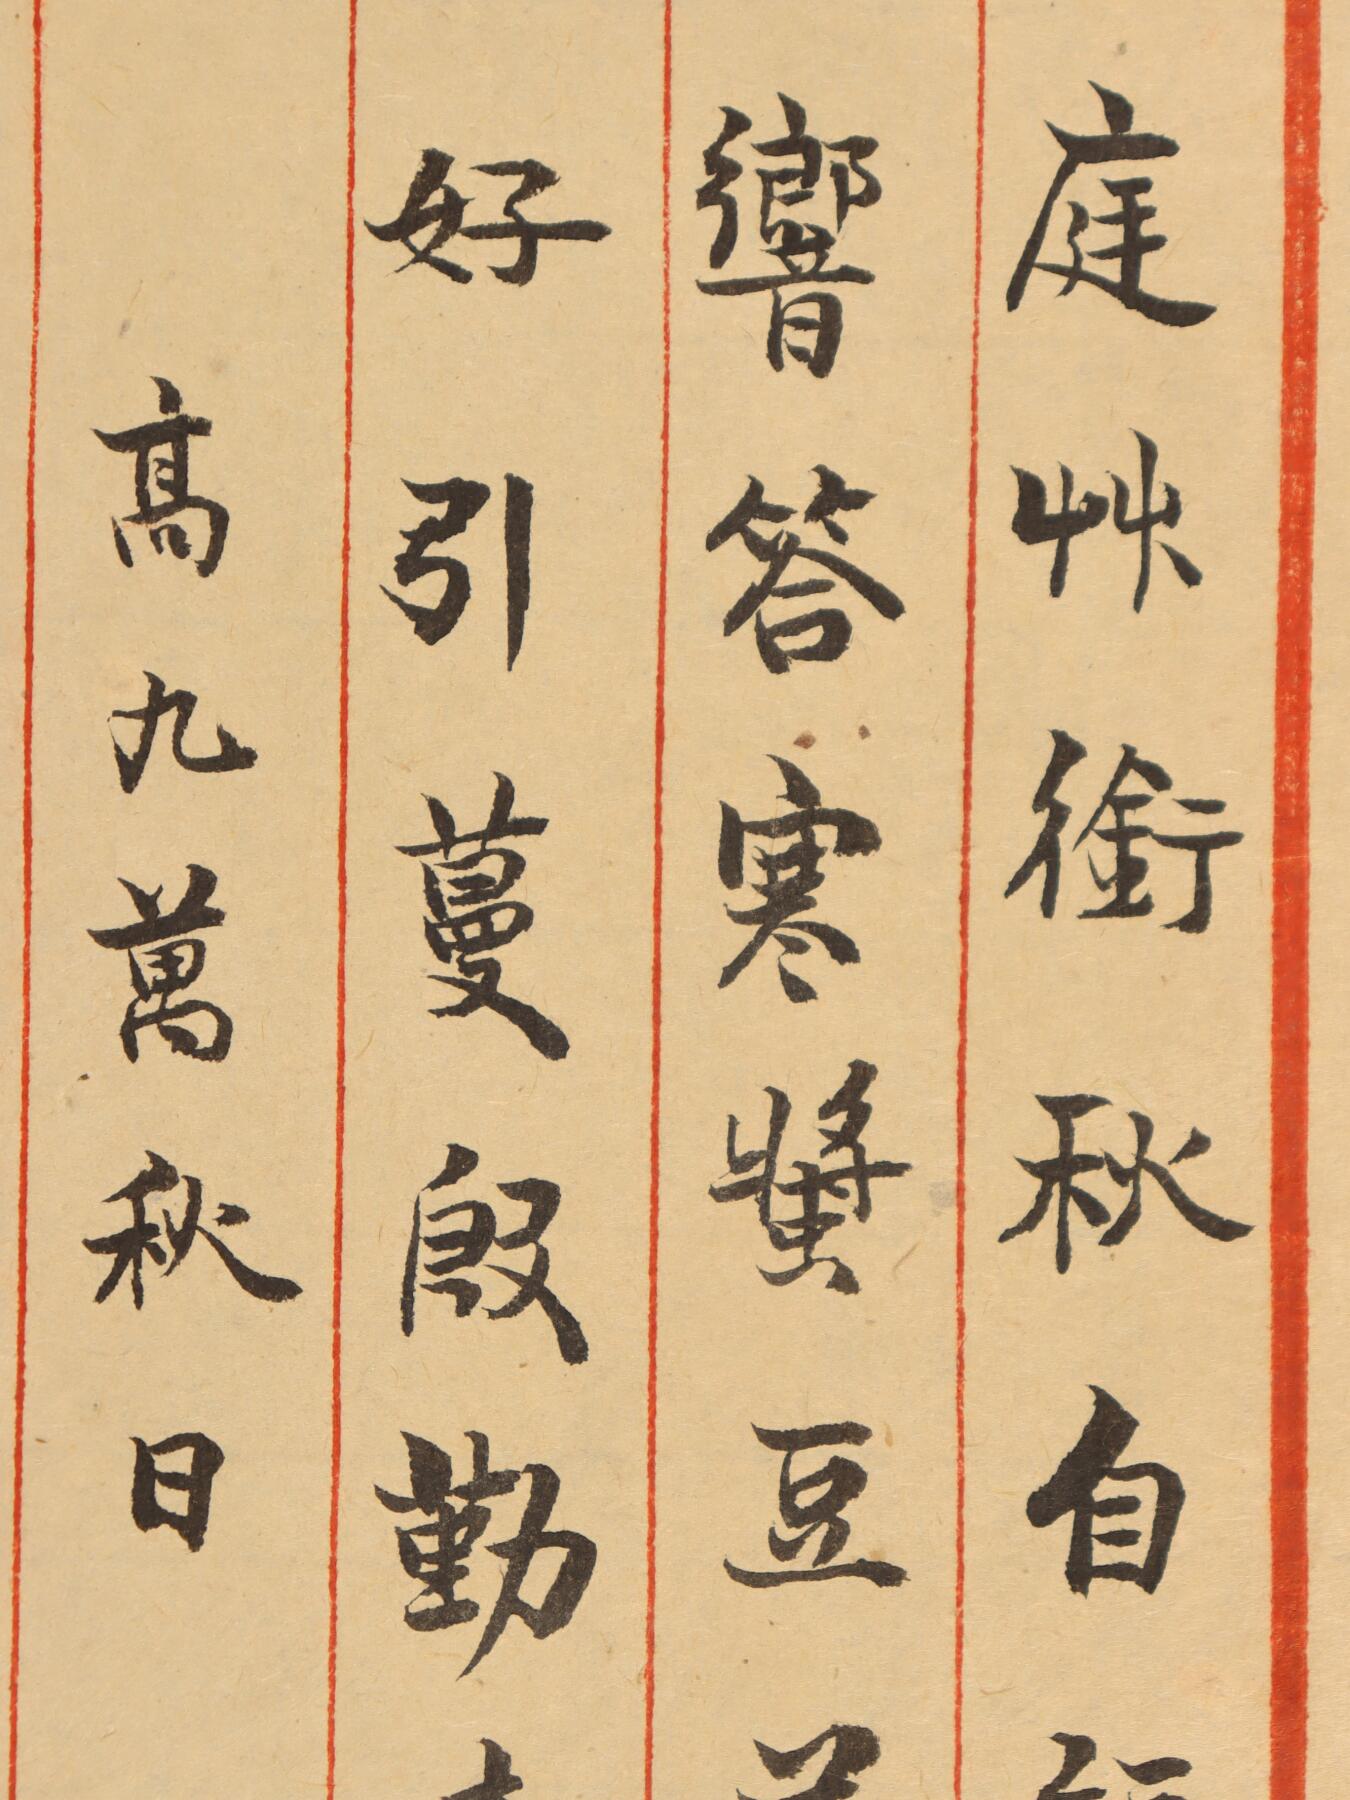 庭艸銜秋自
響答寒螿豆
好引蔓殷勤
高九萬秋日